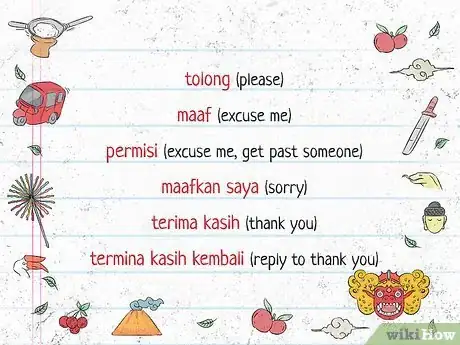 tolong (please)
maaf (excuse me)
permisi (excuse me, get past someone)
maafkan saya (sorry)
terima kasih (thank you)
termina kasih kembali (reply to thank you)
wikiHow